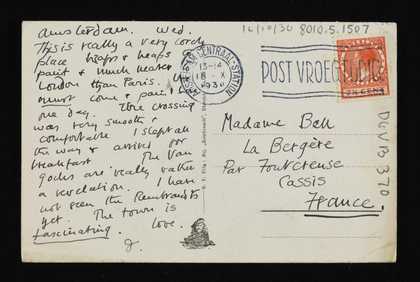 Amsterdam. Wed.
This is really a very lovely
place heaps & heaps
paint & much nearer
London than Paris. We
must come & paint
one day. The crossing
was very smooth &
comfortable I slept all
the way & arrived for
breakfast. The Van
Goghs are really rather
a revelation. I have
not seen the Rembrandts
yet. The town is
fascinating. love.
D.
16/10/30 8010.5.1507
AMSTERDAM CENTRAAL-STATION
13-14
8 X
1930
POST VROEGTIJDIG
Madame Bell
La Bergère
Par Fontcreuse
Cassis
France.
DGVB 370